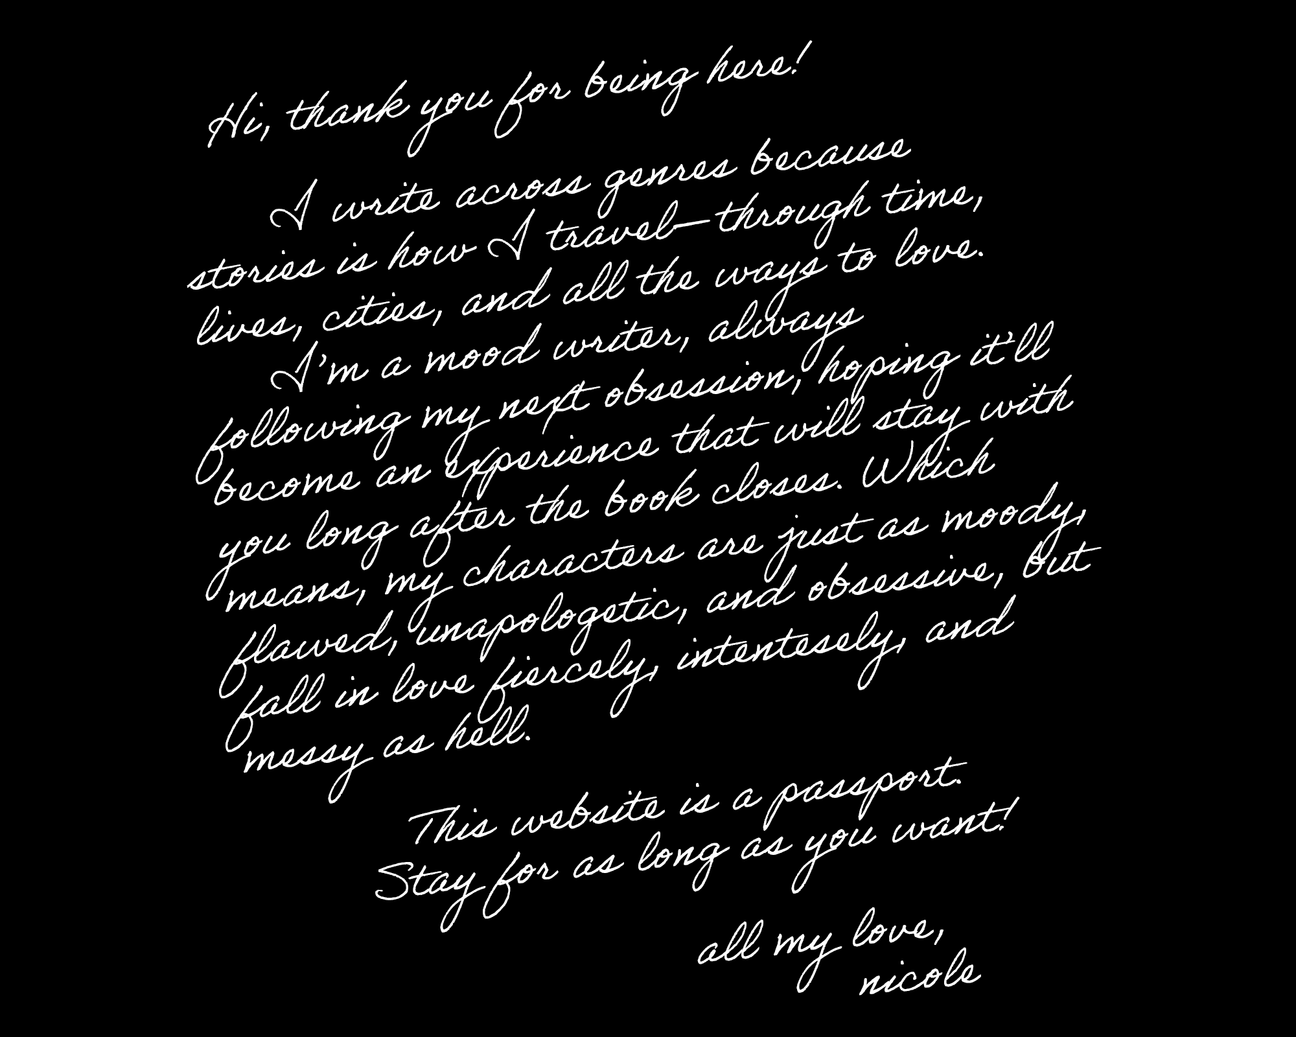 Hi, thank you for being here!
I write across genres because
stories is how I travel—through time,
lives, cities, and all the ways to love.
I'm a mood writer, always
following my next obsession, hoping it'll
become an experience that will stay with
you long after the book closes. Which
means, my characters are just as moody,
flawed, unapologetic, and obsessive, but
fall in love fiercely, intentesely, and
messy as hell.
This website is a passport.
Stay for as long as you want!
all my love,
nicole